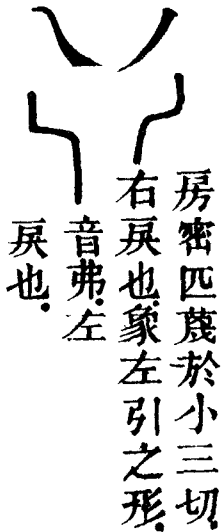 丿
房密匹蔑於小三切
右戾也.象左引之形.
乀
音弗.左
戾也.